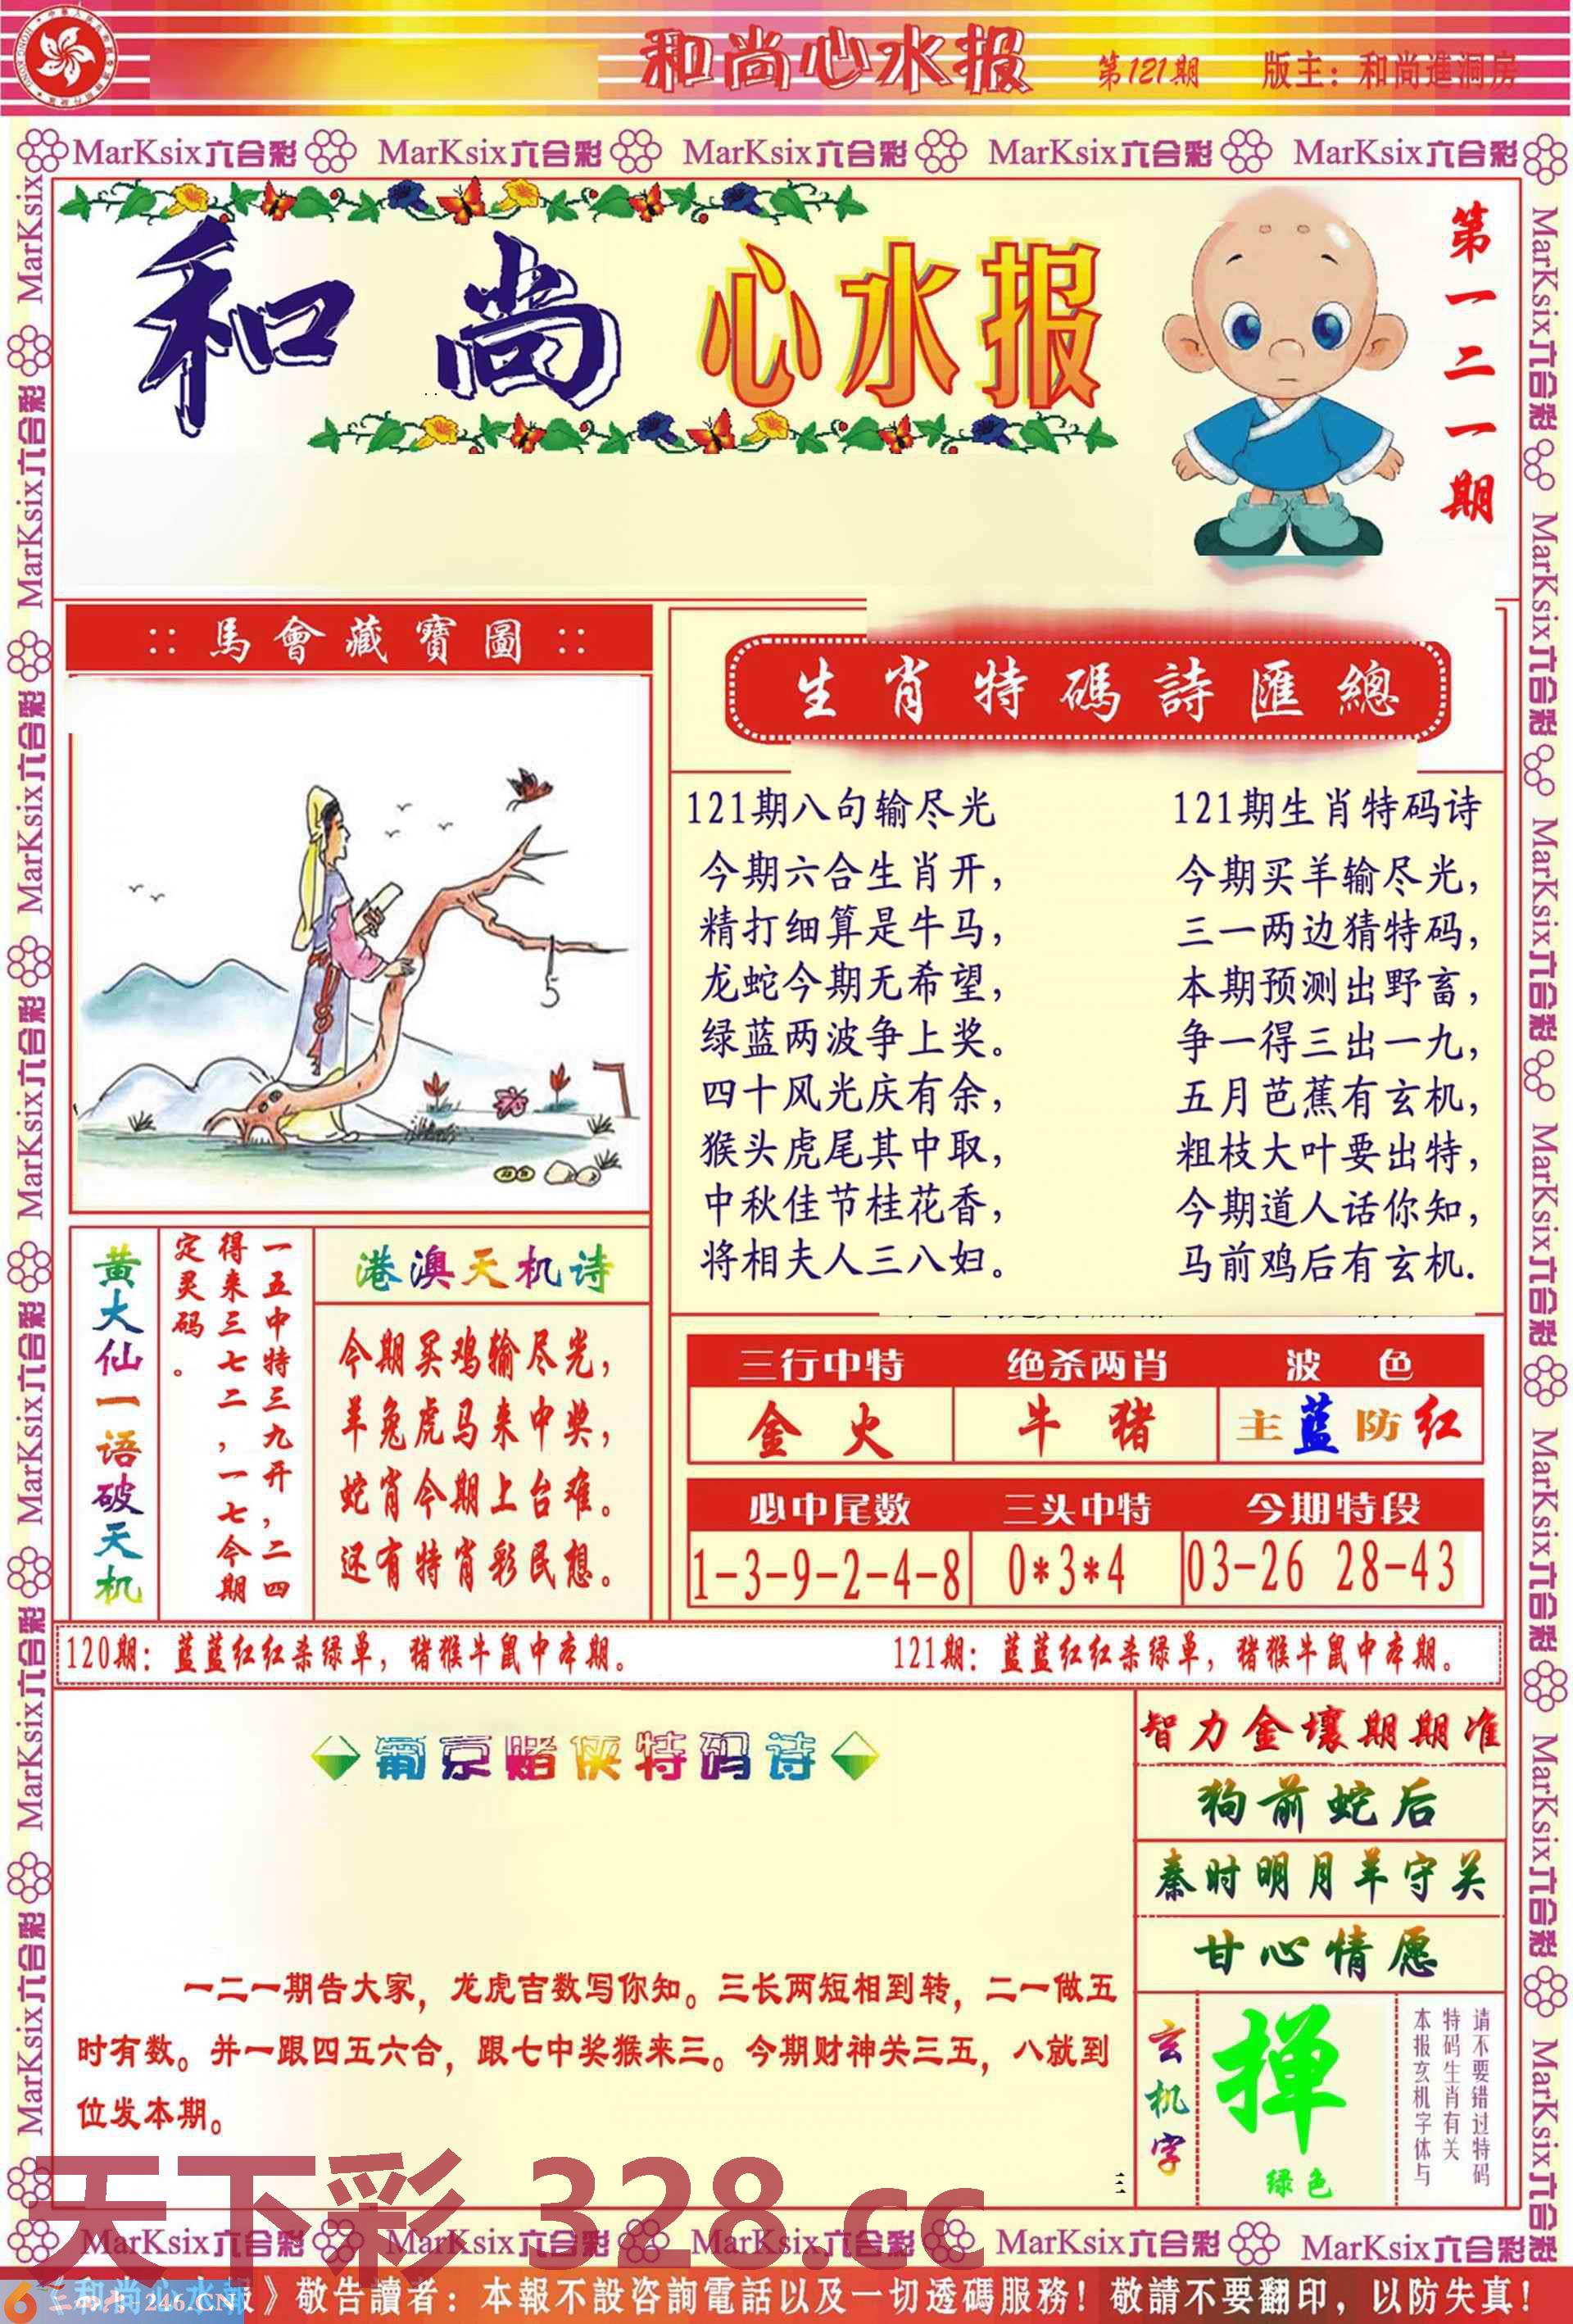 和尚心水报 第121期 版主：和尚進洞房
MarKsix六合彩 MarKsix六合彩 MarKsix六合彩 MarKsix六合彩 MarKsix六合彩
和尚心水报
第一二一期
:: 馬會藏寶圖 ::
5
生肖特碼詩匯總
121期八句输尽光
今期六合生肖开，
精打细算是牛马，
龙蛇今期无希望，
绿蓝两波争上奖。
四十风光庆有余，
猴头虎尾其中取，
中秋佳节桂花香，
将相夫人三八妇。
121期生肖特码诗
今期买羊输尽光，
三一两边猜特码，
本期预测出野畜，
争一得三出一九，
五月芭蕉有玄机，
粗枝大叶要出特，
今期道人话你知，
马前鸡后有玄机.
黄大仙一语破天机
一五中特三九开，二四
得来三七二，一七今期
定灵码。
港澳天机诗
今期买鸡输尽光，
羊兔虎马来中奖，
蛇肖今期上台难。
还有特肖彩民想。
三行中特 绝杀两肖 波色
金火 牛猪 主蓝防红
必中尾数 三头中特 今期特段
1-3-9-2-4-8 0*3*4 03-26 28-43
120期：蓝蓝红红杀绿单，猪猴牛鼠中本期。
121期：蓝蓝红红杀绿单，猪猴牛鼠中本期。
葡京赌侠特码诗
一二一期告大家，龙虎吉数写你知。三长两短相到转，二一做五
时有数。并一跟四五六合，跟七中奖猴来三。今期财神关三五，八就到
位发本期。
智力金壤期期准
狗前蛇后
秦时明月羊守关
甘心情愿
玄机字
掸
绿色
请不要错过特码
特码生肖有关
本报玄机字体与
天下彩 328.cc
MarKsix六合彩 MarKsix六合彩 MarKsix六合彩 MarKsix六合彩 MarKsix六合彩
246.CN
《和尚心水报》敬告讀者：本報不設咨詢電話以及一切透碼服務！敬請不要翻印，以防失真！